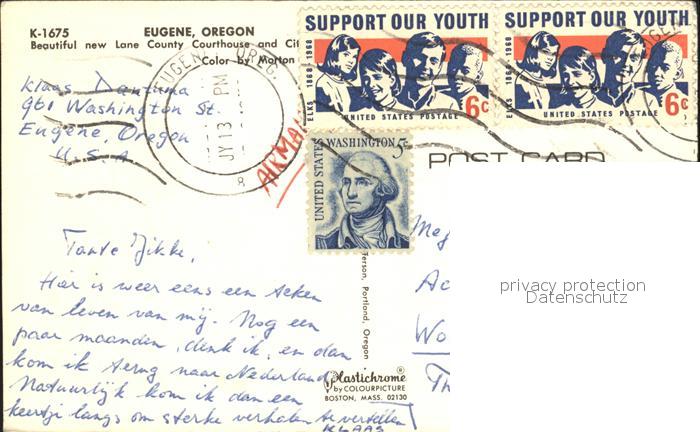 K-1675 EUGENE, OREGON
Beautiful new Lane County Courthouse and Cit
Color by Morton
Klaas Dantuma
961 Washington St.
Eugene, Oregon
U.S.A
EUGENE, OREG.
PM
JY 13
AIRMAIL
SUPPORT OUR YOUTH
ELKS 1868-1968
6c
UNITED STATES POSTAGE
SUPPORT OUR YOUTH
ELKS 1868-1968
6c
UNITED STATES POSTAGE
WASHINGTON 5c
UNITED STATES
POST CARD
Tante Jikke,
Hier is weer eens een teken
van leven van mij. Nog een
paar maanden, denk ik, en dan
kom ik terug naar Nederland
Natuurlijk kom ik dan een
keertje langs om sterke verhalen te vertellen
KLAAS
terson, Portland, Oregon
Plastichrome®
by COLOURPICTURE
BOSTON, MASS. 02130
Me
Ac
Wo
Th
privacy protection
Datenschutz